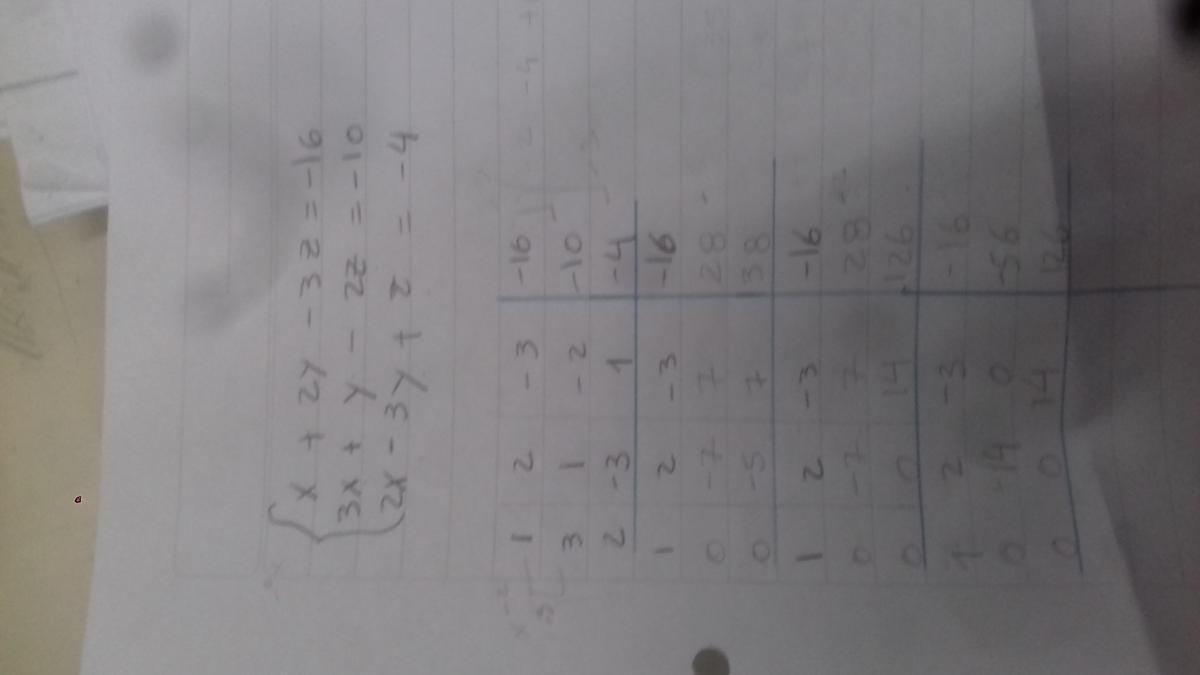 x + 2y - 3z = -16
3x + y - 2z = -10
2x - 3y + z = -4
1 2 -3 -16
3 1 -2 -10
2 -3 1 -4
1 2 -3 -16
0 -7 7 28
0 -5 7 38
1 2 -3 -16
0 -7 7 28
0 0 14 126
1 2 -3 -16
0 -14 0 -56
0 0 14 126